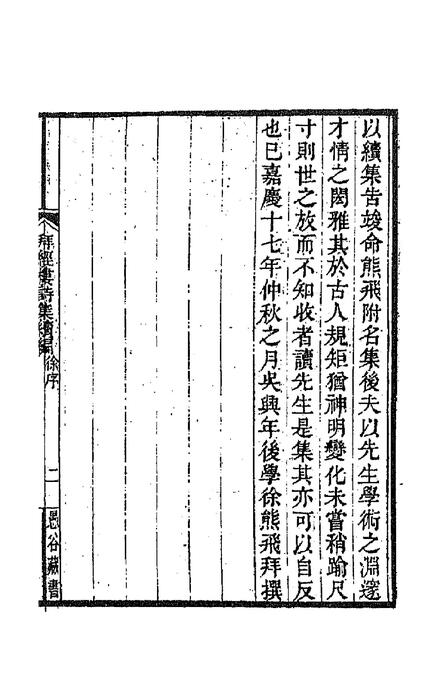 以續集告竣命熊飛附名集後夫以先生學術之淵邃
才情之閎雅其於古人規矩猶神明變化未嘗稍踰尺
寸則世之放而不知收者讀先生是集其亦可以自反
也已嘉慶十七年仲秋之月吳興年後學徐熊飛拜撰
拜經樓詩集續編 徐序 二 愚谷藏書